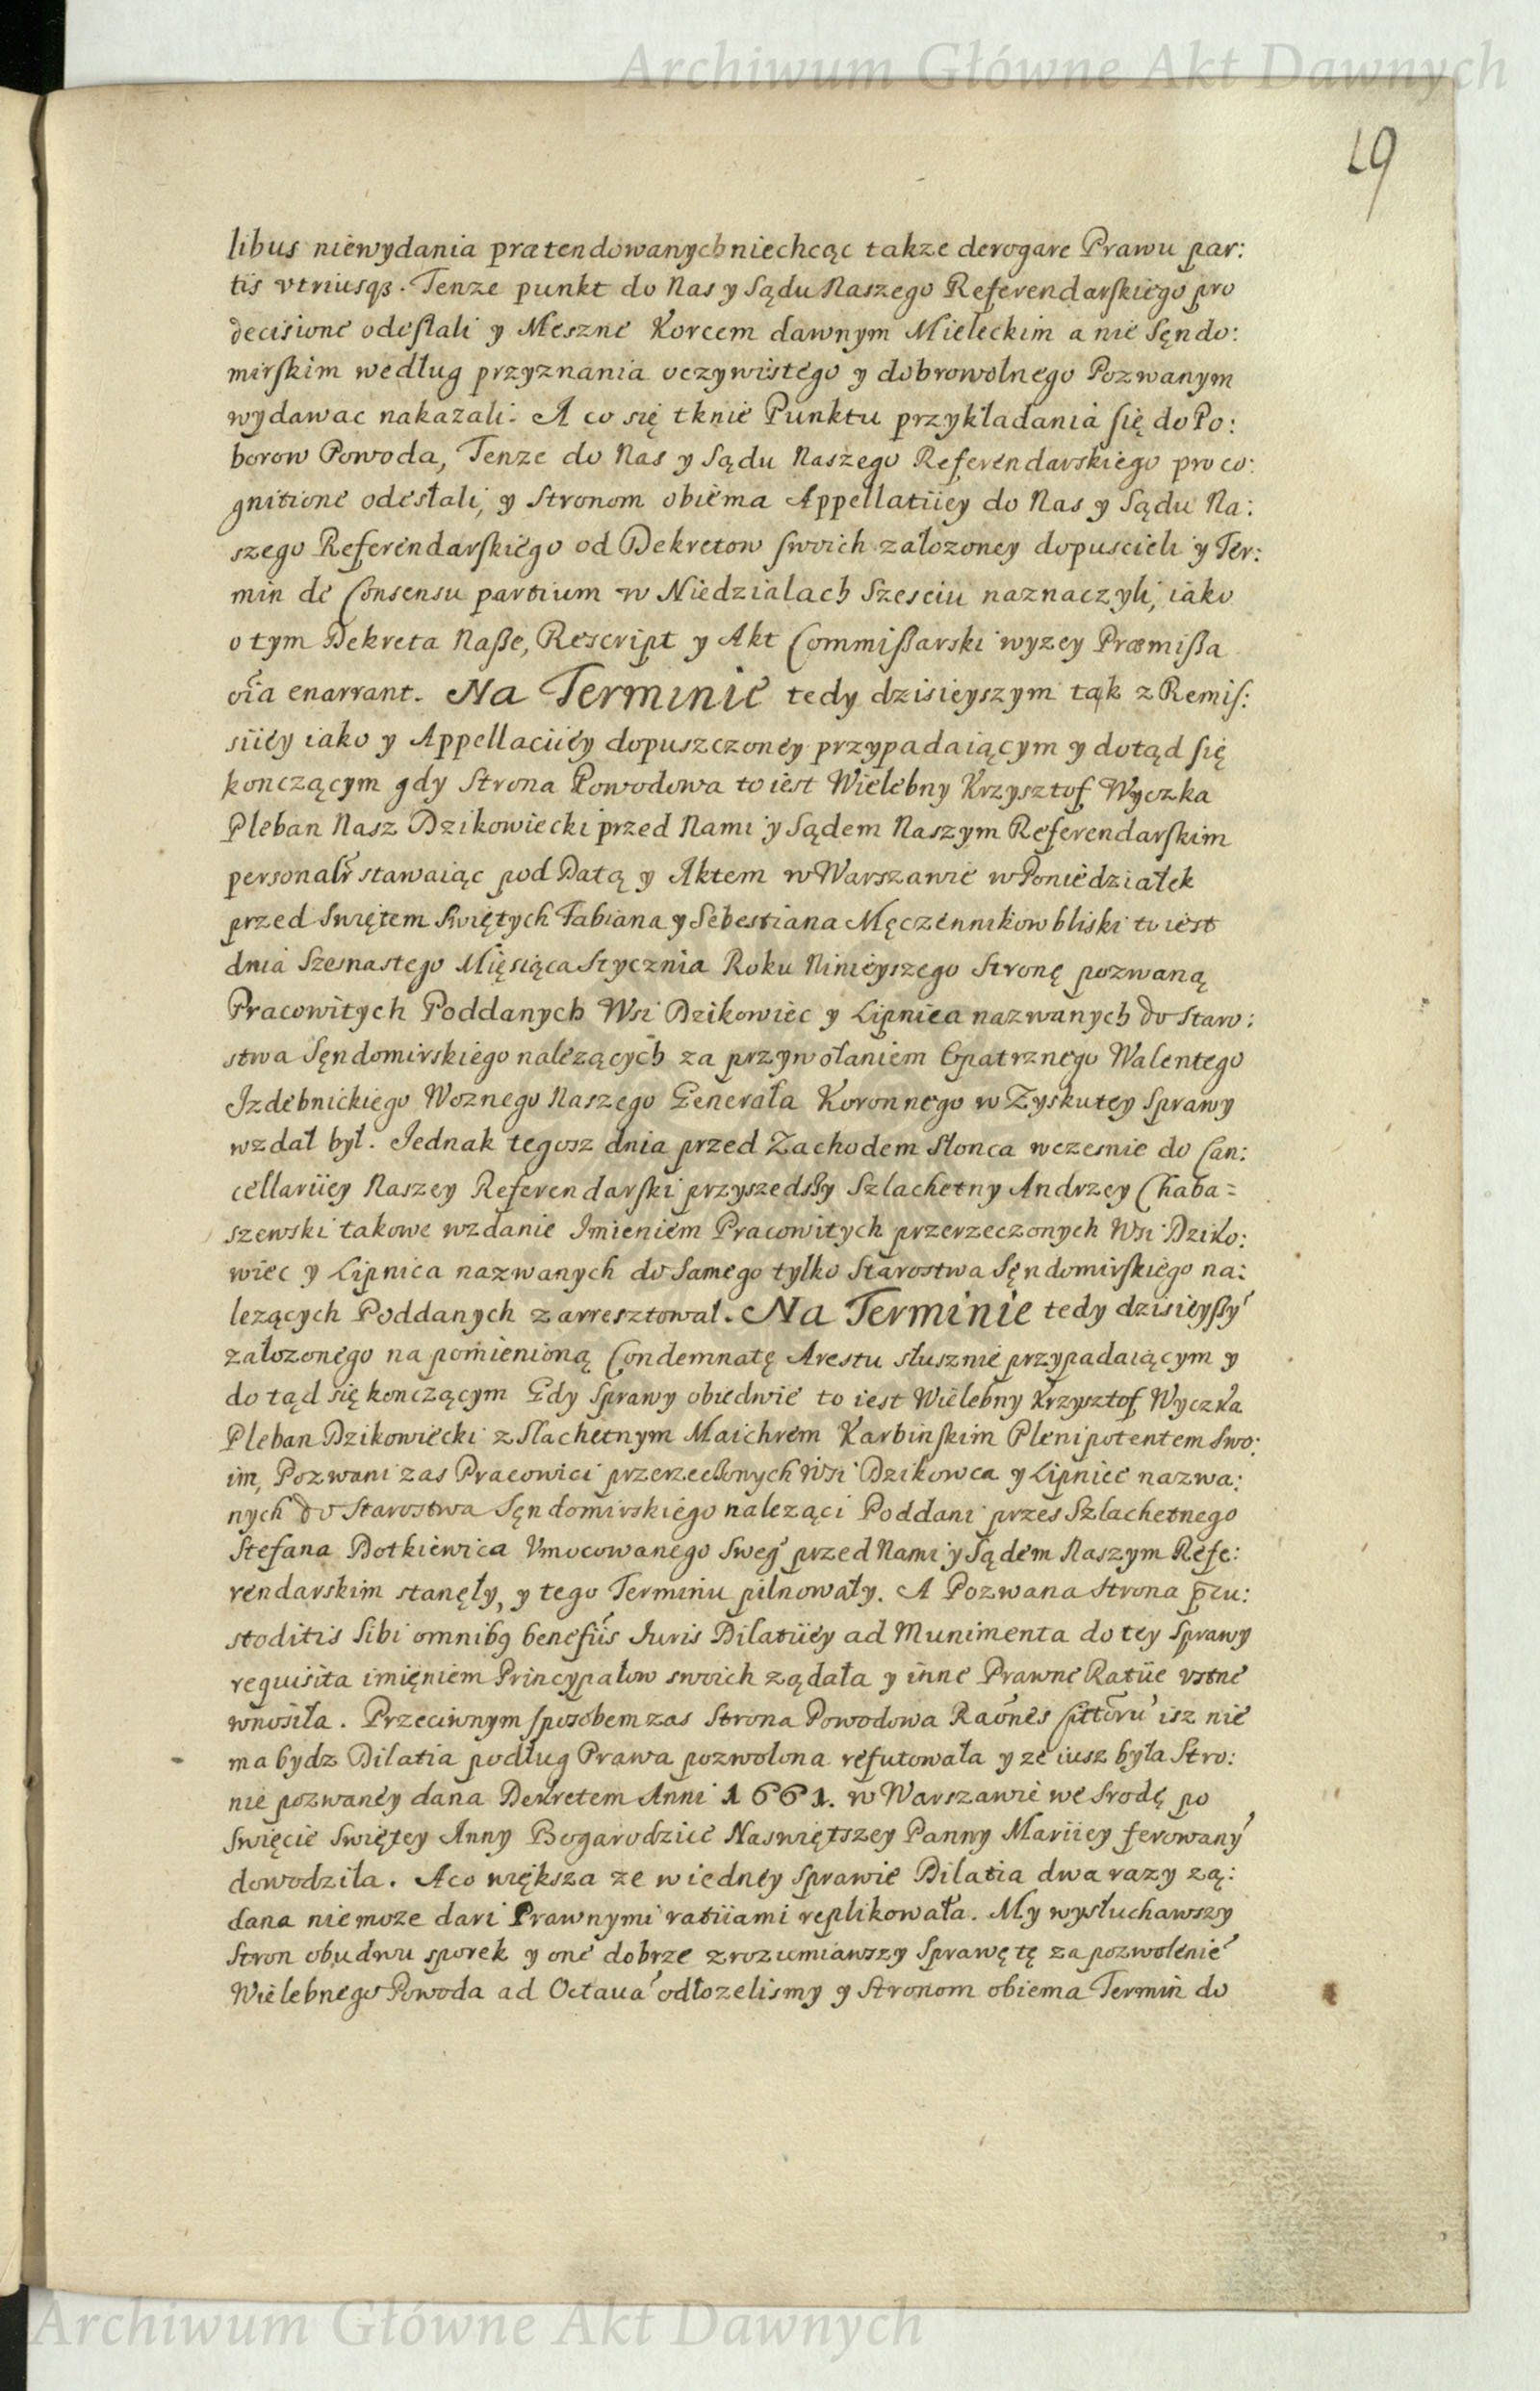 Archiwum Główne Akt Dawnych
19
libus niewydania prætendowanych niechcąc takze derogare Prawu par:
tis vtriusqз. Tenze punkt do Nas y Sądu Naszego Referendarſkiego pro
decisione odeſłali y Meszne Korcem dawnym Mieleckim a nie Sęndo:
mirſkim według przyznania oczywistego y dobrowolnego Pozwanym
wydawac nakazali. A co się tknie Punktu przykładania ſię do Po:
borow Powoda, Tenze do Nas y Sądu Naszego Referendarskiego pro co:
gnitione odesłali, y Stronom obiema Appellatiiey do Nas y Sądu Na:
szego Referendarſkiego od Dekretow ſwoich załozoney dopuscieli y Ter:
min de Consensu partium w Niedzialach Szesciu naznaczyli, iako
o tym Dekreta Naſze, Rescript y Akt Commiſsarski wyzey Præmiſsa
oīa enarrant. Na Terminie tedy dzisieyszym tąk z Remiſ:
siiey iako y Appellaciiey dopuszczoney przypadaiącym y dotąd ſię
konczącym gdy Strona Powodowa to iest Wielebny Krzysztof Wyczka
Pleban Nasz Dzikowiecki przed Nami y Sądem Naszym Referendarſkim
personalr̃ stawaiąc pod Datą y Aktem w Warszawie w Poniedziałek
przed Swiętem Swiętych Fabiana y Sebestiana Męczennikow bliski to iest
dnia Szesnastego Mięsiąca Stycznia Roku Ninieyszego Stronę pozwaną
Pracowitych Poddanych Wsi Dzikowiec y Lipnica nazwanych do Staro:
stwa Sęndomirskiego nalezących za przywołaniem Opatrznego Walentego
Izdebnickiego Woznego Naszego Generała Koronnego w Zysku tey Sprawy
wzdał był. Jednak tegosz dnia przed Zachodem Słonca wczesnie do Can:
cellariiey Naszey Referendarſki przyszedſzy Szlachetny Andrzey Chaba=
szewski takowe wzdanie Imieniem Pracowitych przerzeczonych Wsi Dziko:
wiec y Lipnica nazwanych do Samego tylko Starostwa Sęndomirſkiego na:
lezących Poddanych zarresztował. Na Terminie tedy dzisieyſzỹ
załozonego na pomienioną Condemnatę Arestu słusznie przypadaiącym y
do tąd się konczącym Gdy Sprawy obiedwie to iest Wielebny Krzysztof Wyczka
Pleban Dzikowiecki z Slachetnym Maichrem Karbinſkim Plenipotentem Swo:
im, Pozwani zas Pracowici przerzeczonych Wsi Dzikowca y Lipnice nazwa:
nych do Starostwa Sęndomirskiego nalezący Poddani przes Szlachetnego
Stefana Dotkiewica Vmocowanego Sweg̃ przed Nami y Sądem Naszym Refe:
rendarskim stanęły, y tego Terminu pilnowały. A Pozwana Strona p̄cu:
stoditis Sibi omnibꝯ benefiis̃ Iuris Dilatiiey ad Munimenta do tey Sprawy
requisita imięniem Princypałow swoich ządała y inne Prawne Ratiie vstne
wnosiła. Przeciwnym ſposobem zas Strona Powodowa Raōnes isz nie
ma bydz Dilatia podług Prawa pozwolona refutowała y ze iusz była Stro:
nie pozwaney dana Dekretem Anni 1661. w Warszawie we Srodę po
Swięcie Swiętey Anny Bogarodzice Naswiętszey Panny Mariiey ferowanỹ
dowodziła. A co większa ze w iedney Sprawie Dilatia dwa razy zą:
dana nie moze dari Prawnymi ratiiami replikowała. My wysłuchawszy
Stron obudwu sporek y one dobrze zrozumiawszy Sprawę tę za pozwoleniẽ
Wielebnego Powoda ad Octauã odłozelismy y Stronom obiema Termin do
Archiwum Główne Akt Dawnych